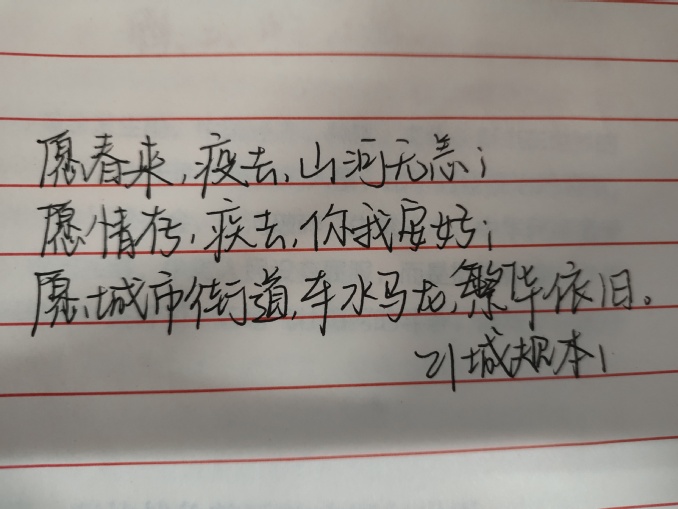 愿春来,疫去,山河无恙;
愿情存,疾去,你我安好;
愿城市街道,车水马龙,繁华依旧。
21城规本1